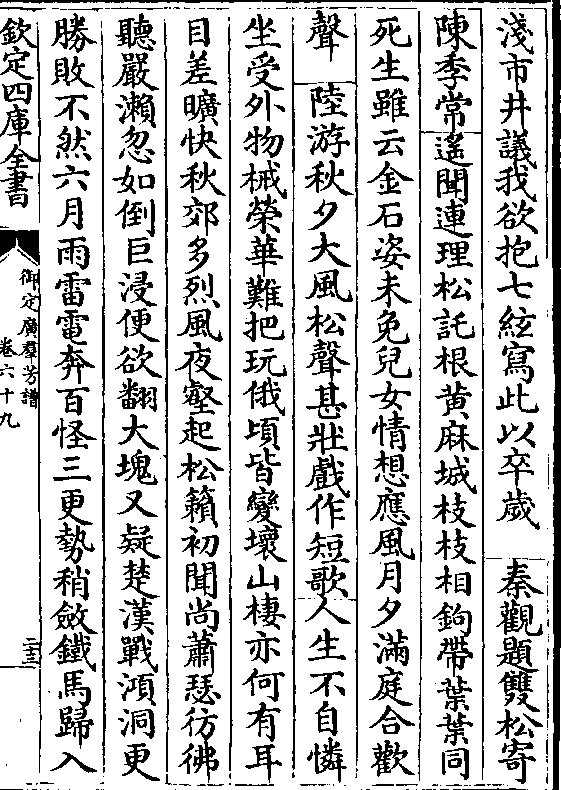 淺市井議我欲抱七絃寫此以卒歲　秦觀題雙松寄
陳季常遙聞連理松託根黃麻城枝枝相鉤帶葉葉同
死生雖云金石姿未免兒女情想應風月夕滿庭合歡
聲　陸游秋夕大風松聲甚壯戲作短歌人生不自憐
坐受外物械榮華難把玩俄頃皆變壞山棲亦何有耳
目差曠快秋郊多烈風夜壑起松籟初聞尚蕭瑟彷彿
聽嚴瀨忽如倒巨浸便欲翻大塊又疑楚漢戰澒洞更
勝敗不然六月雨雷電奔百怪三更勢稍斂鐵馬歸入
欽定四庫全書
御定廣羣芳譜
卷六十九
二十三